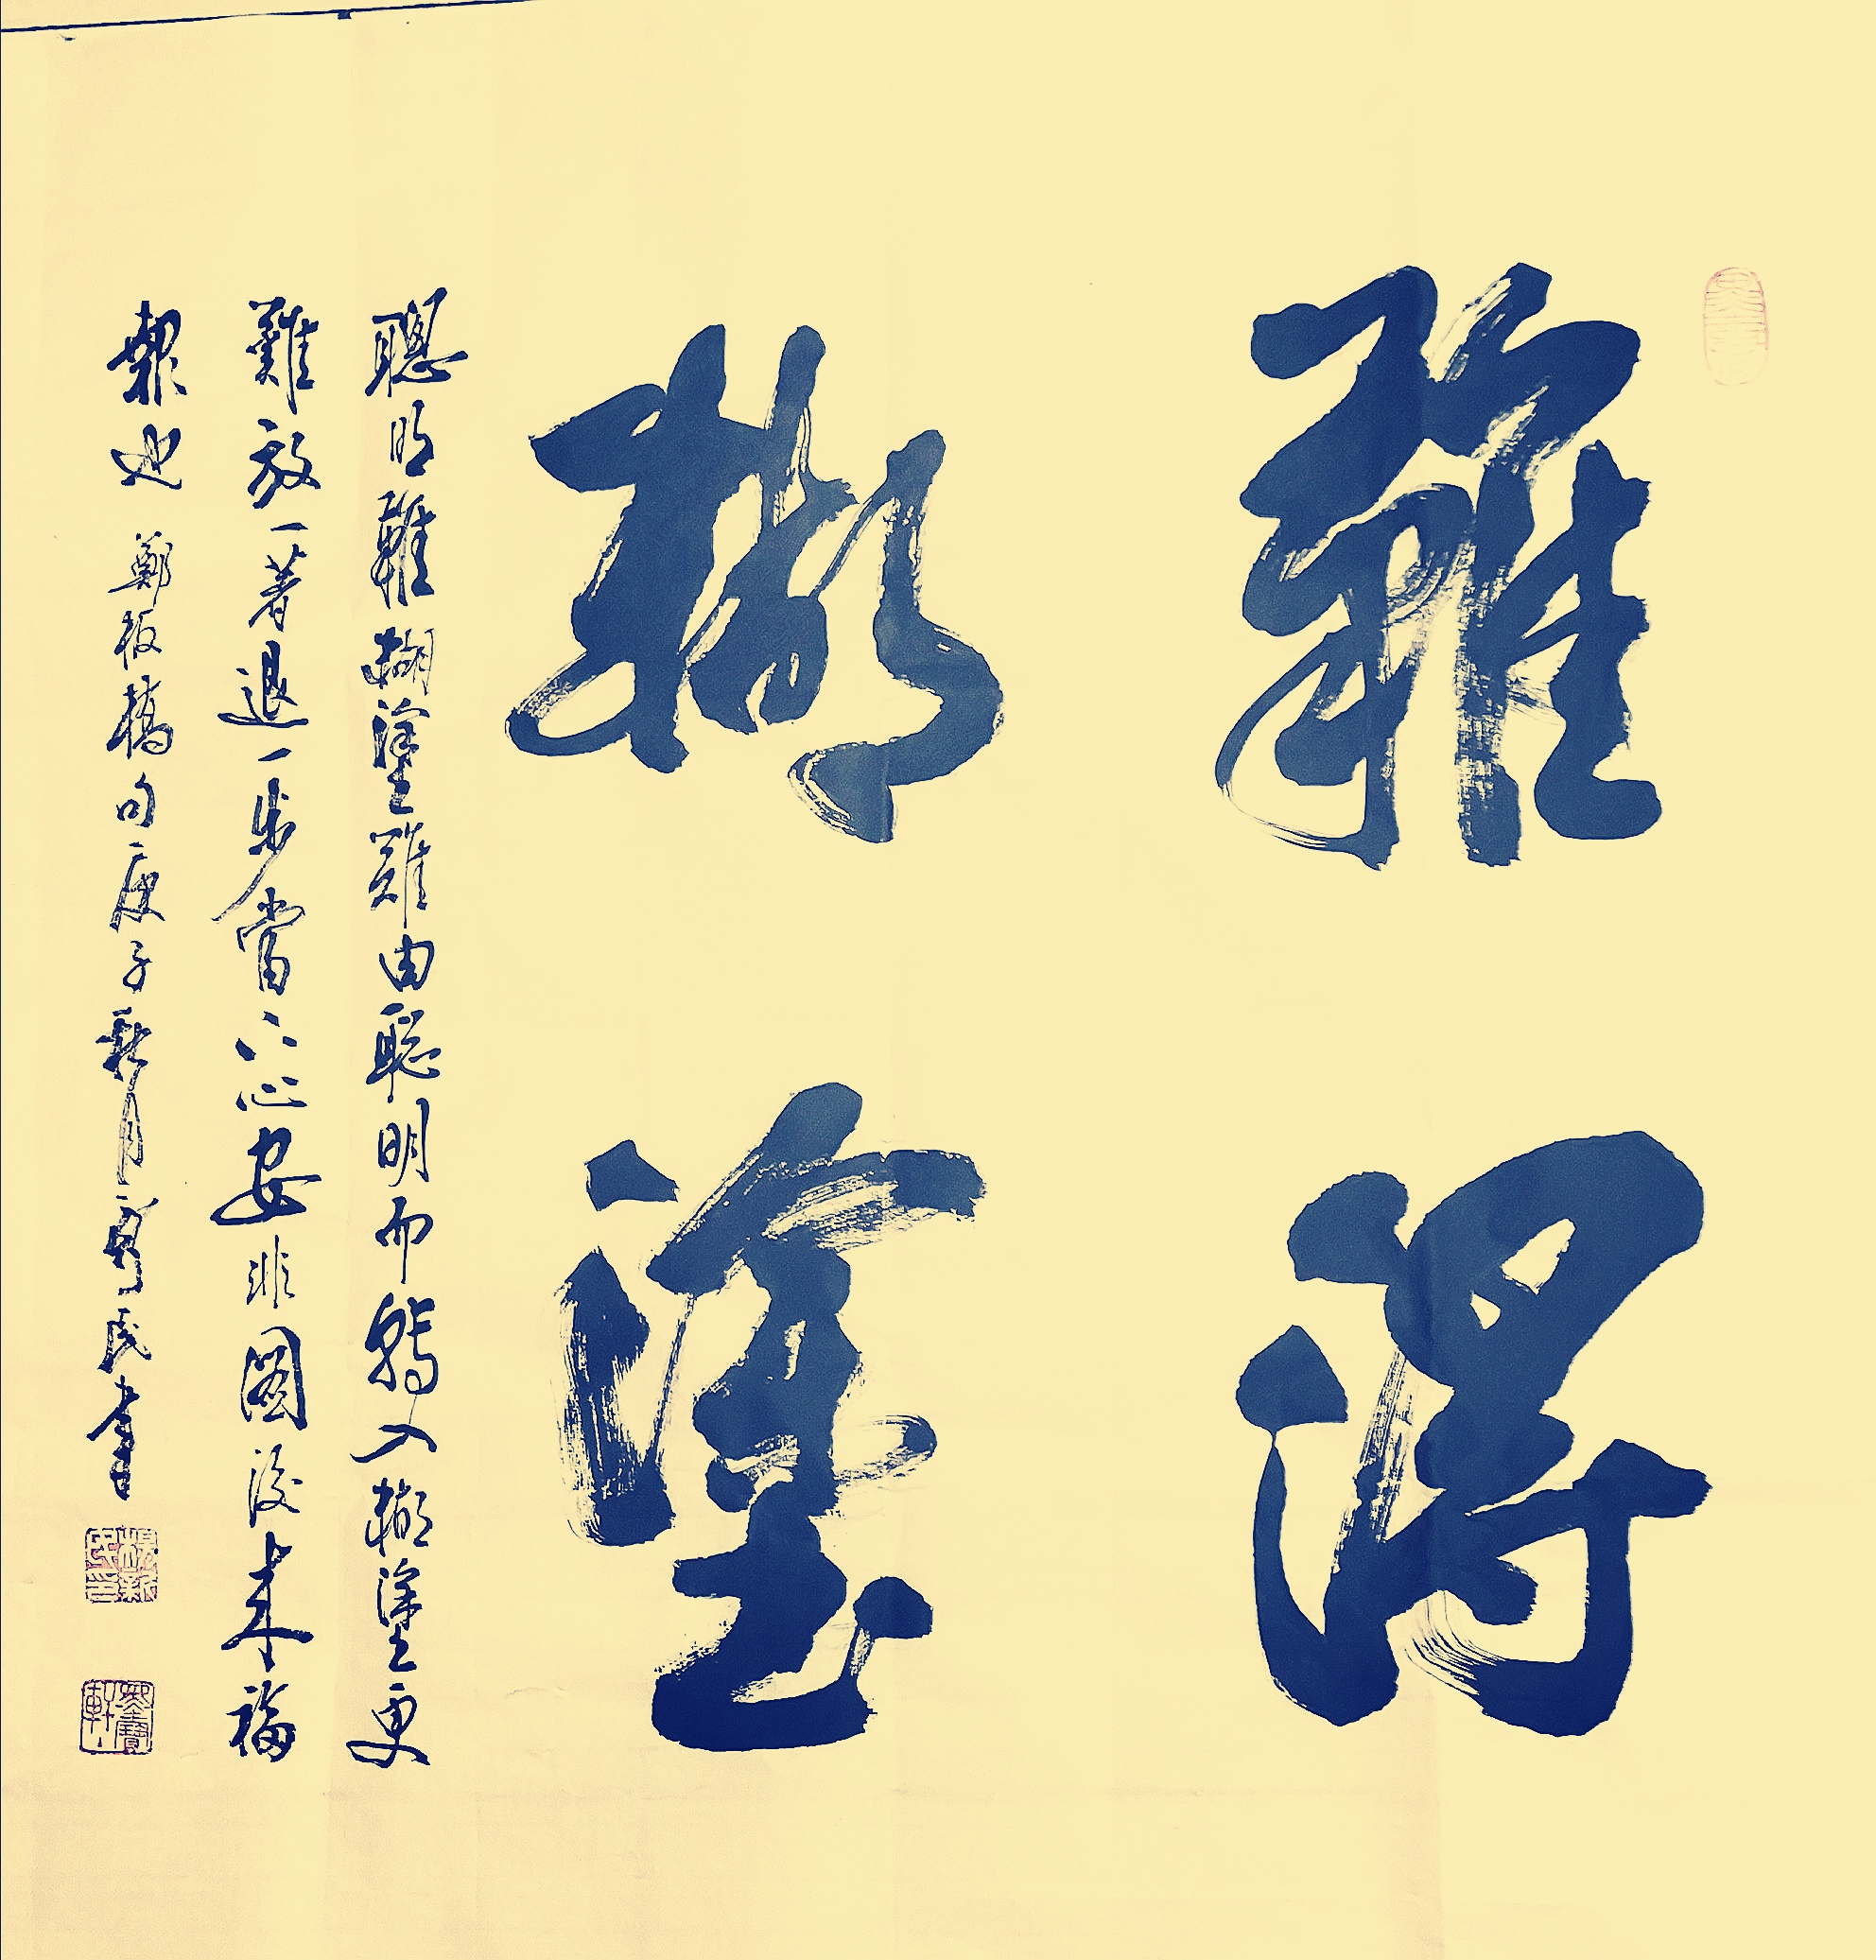 難得
糊塗
聰明難糊塗難由聰明而轉入糊塗更
難放一著退一步當下心安非圖後來福
報也 鄭板橋句庚子秋月新民書
楊新民印
墨寶軒